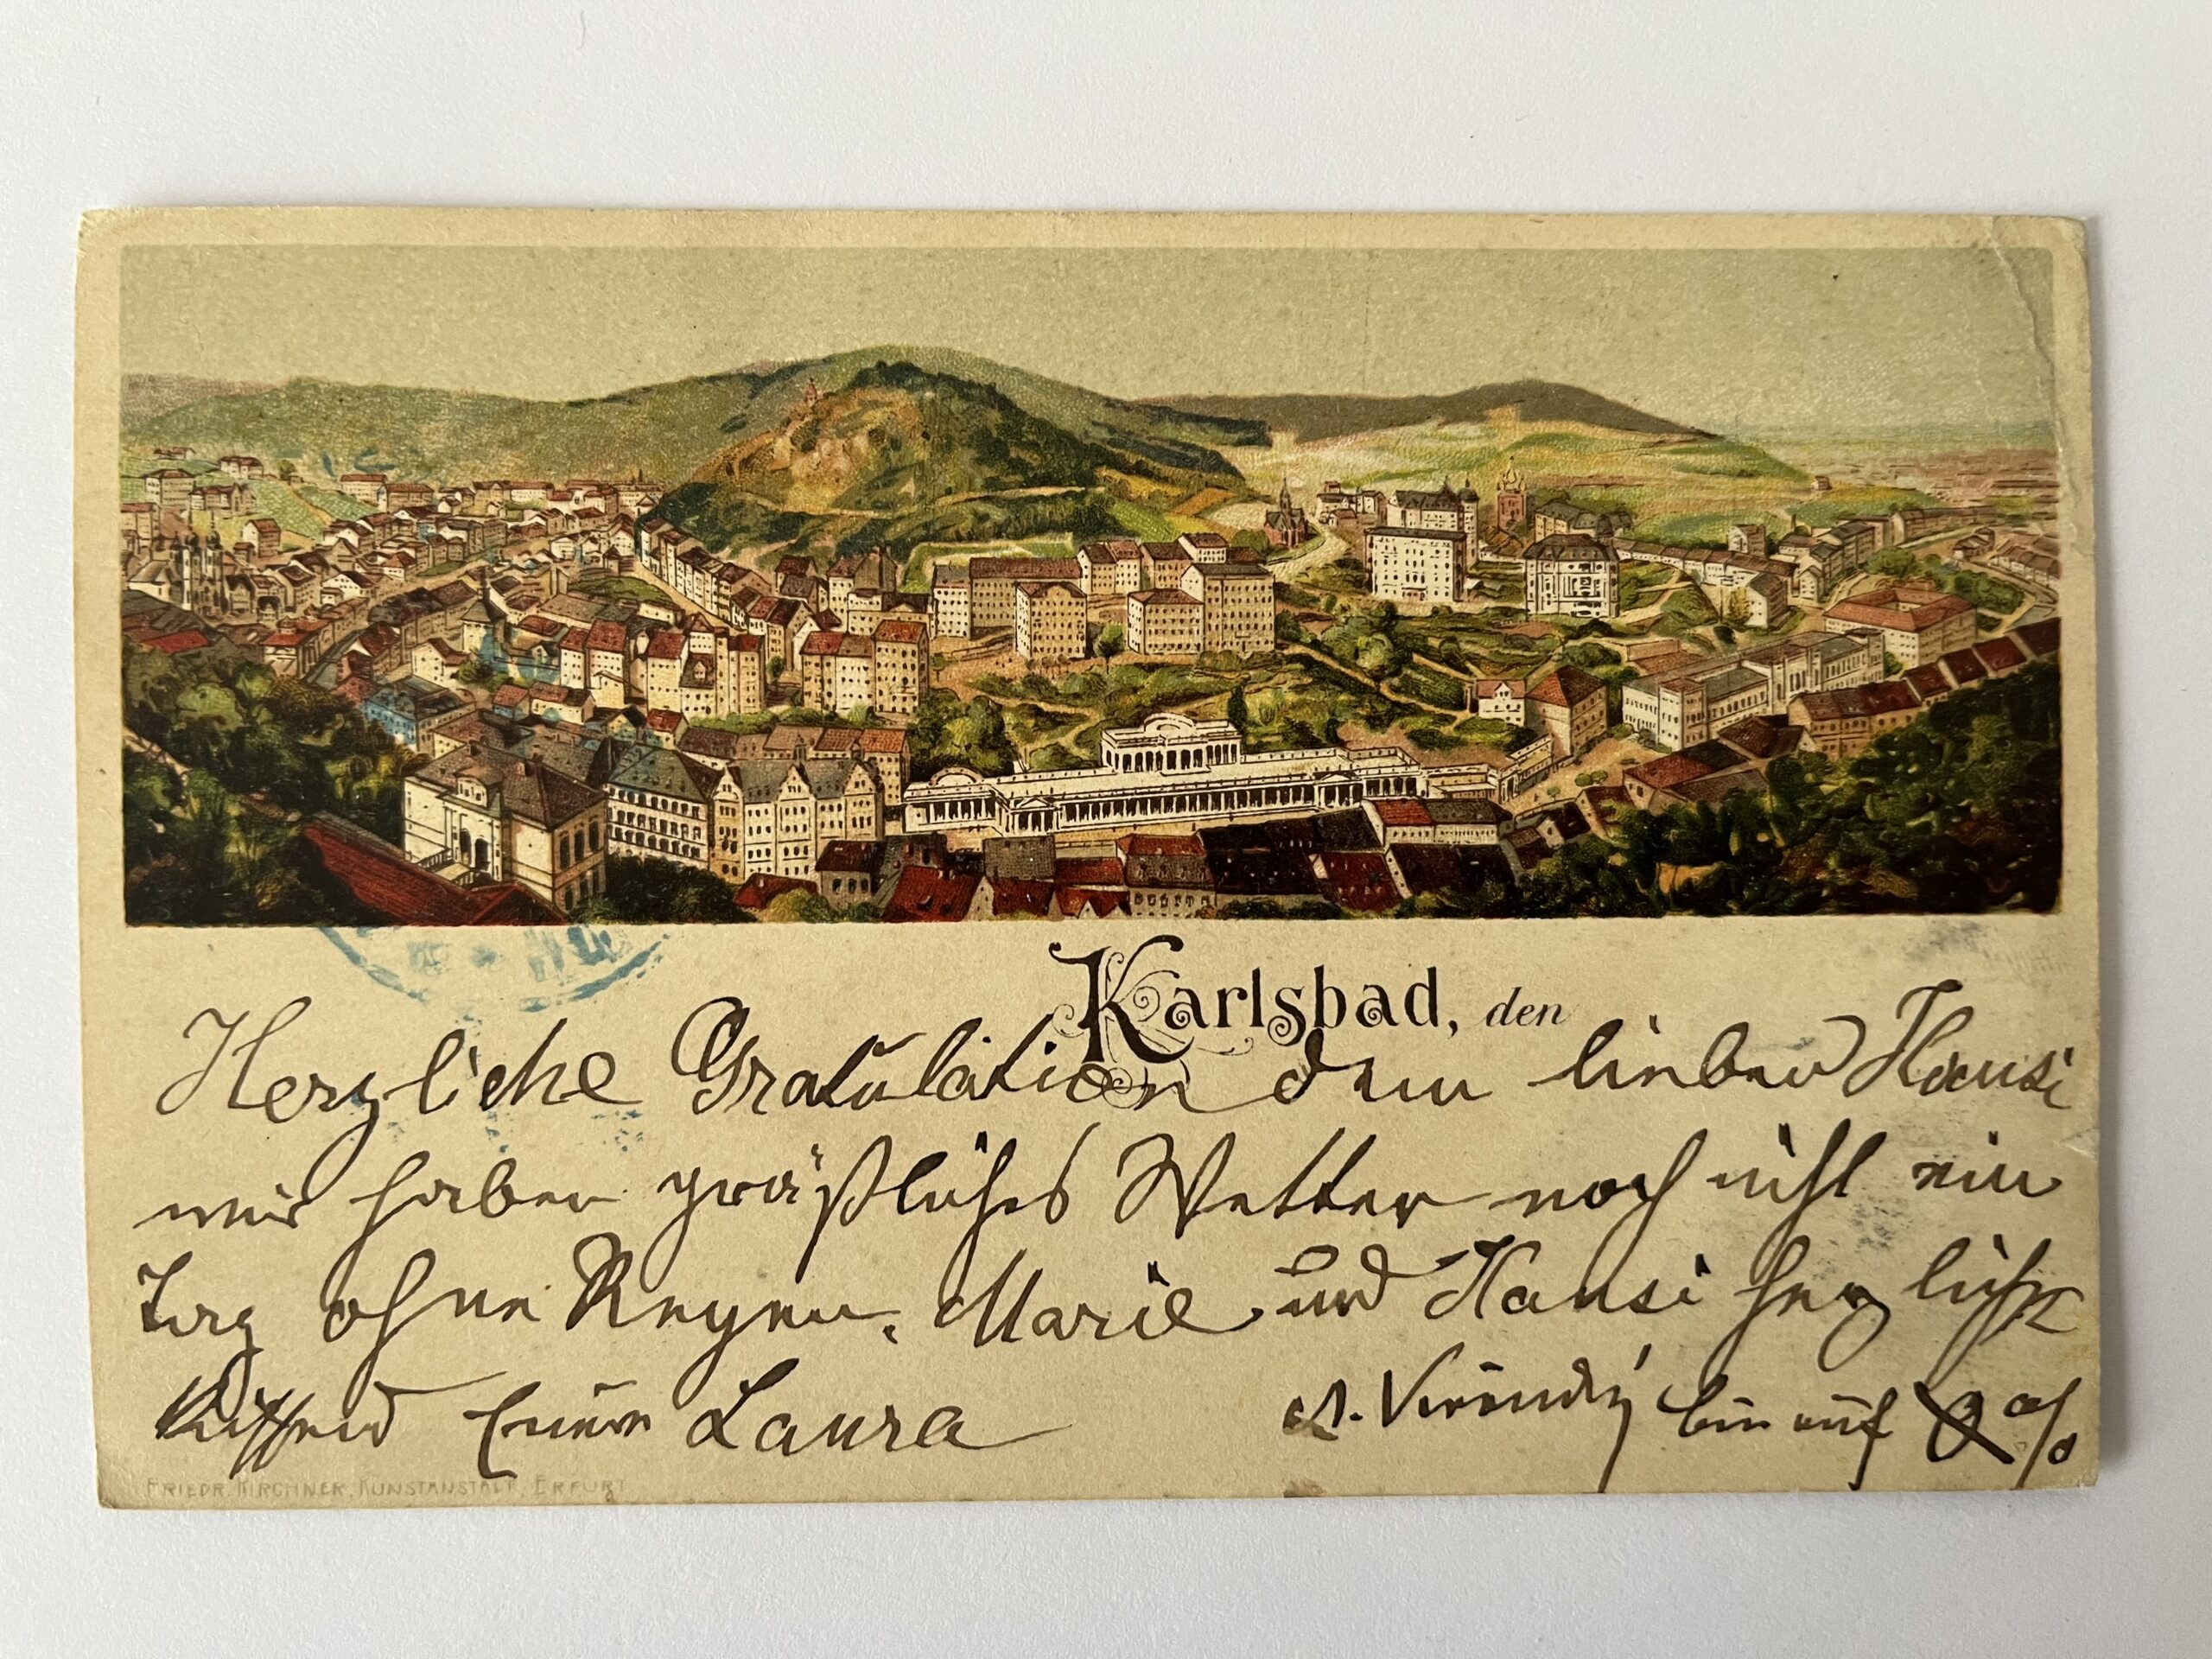 Karlsbad, den
Herzliche Gratulation dem lieben Hansi
wir haben gräßliches Wetter noch nicht ein
Tag ohne Regen. Marie und Hansi herzlichst
küssend Eure Laura
bin auf
FRIEDR. KIRCHNER, KUNSTANSTALT, ERFURT